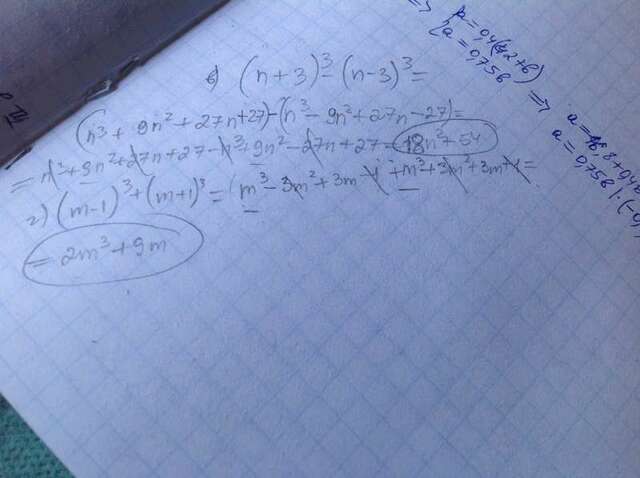 в) (n+3)³-(n-3)³=
(n³+9n²+27n+27)-(n³-9n²+27n-27)=
=n³+9n²+27n+27-n³+9n²-27n+27=18n²+54
г) (m-1)³+(m+1)³=(m³-3m²+3m-1+m³+3m²+3m+1=
=2m³+9m
=>
a=0,75в
=>
a=0,75в